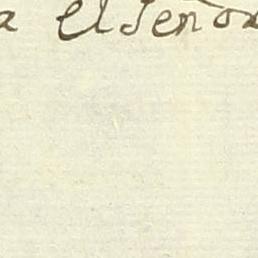 a el Señor